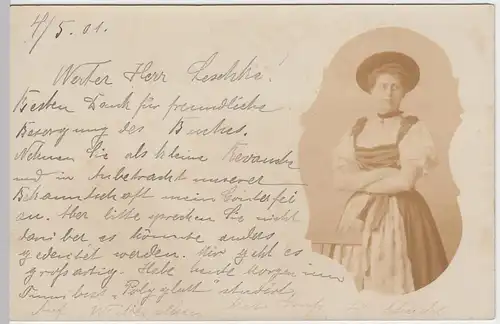 4/5.01.
Werter Herr Leschke!
Besten Dank für freundliche
Besorgung des Buches.
Nehmen Sie als kleine Revanche
und in Anbetracht unserer
Bekanntschaft mein Conterfei
an. Aber bitte sprechen Sie nicht
darüber es könnte anders
gedeutet werden. Mir geht es
großartig. Habe heute morgen im
"Polyglott" studiert,
Auf